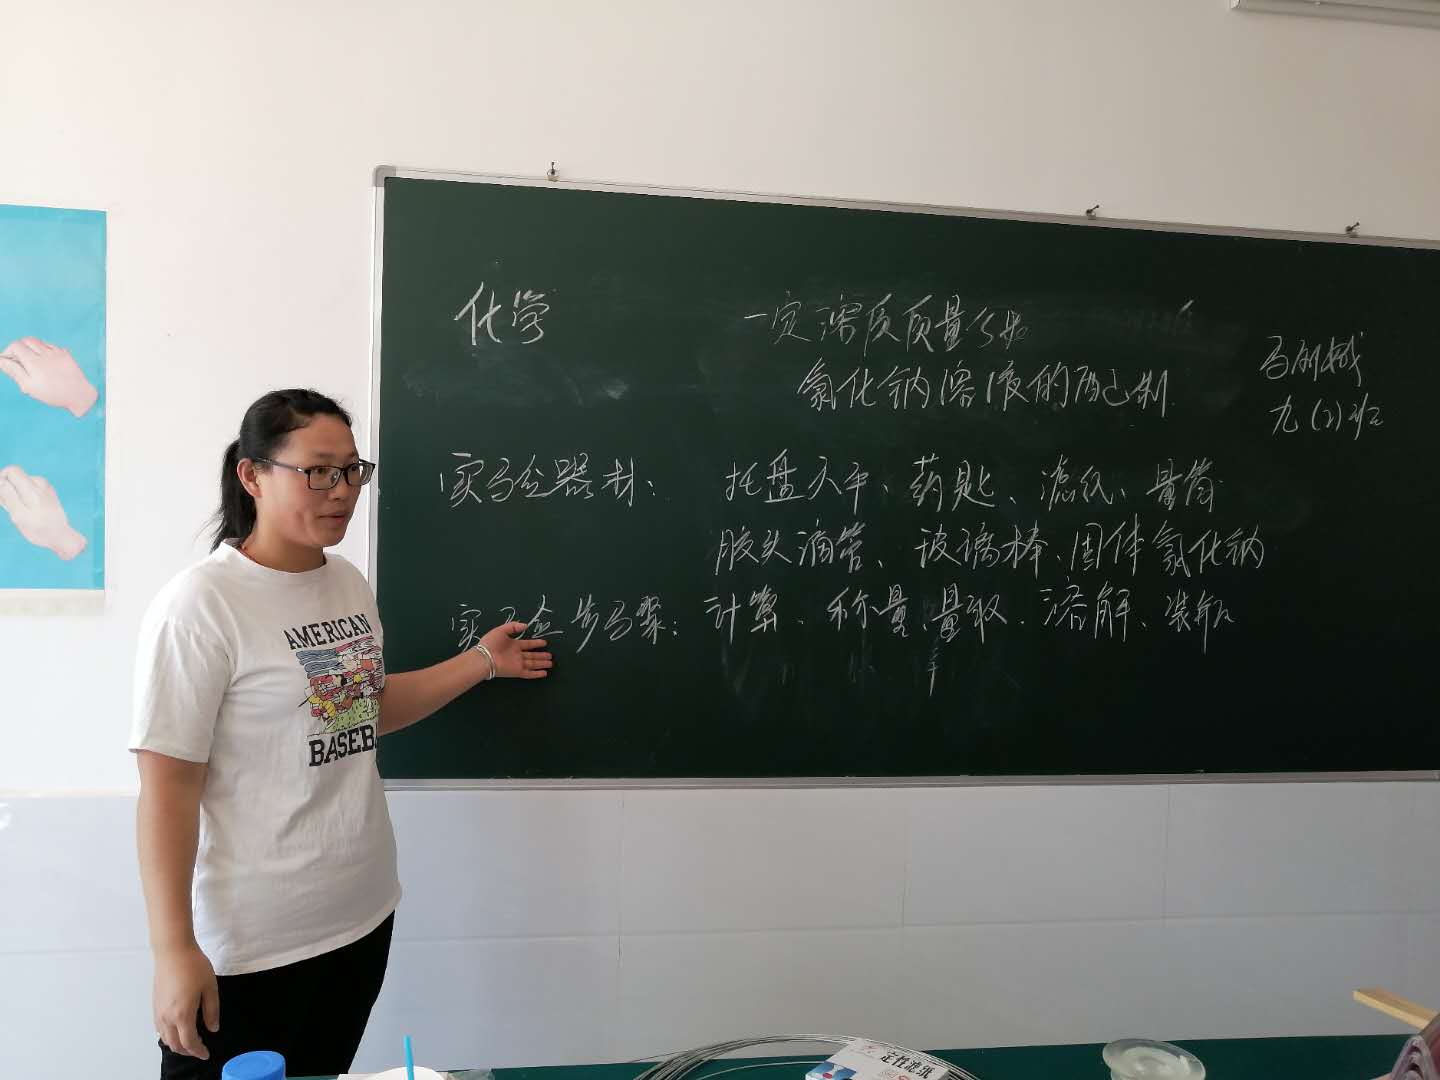 化学
一定溶质质量分数
氯化钠溶液的配制
九(2)班
实验器材：托盘天平、药匙、滤纸、量筒
胶头滴管、玻璃棒、固体氯化钠
实验步骤：计算、称量、量取、溶解、装瓶
AMERICAN
定性滤纸